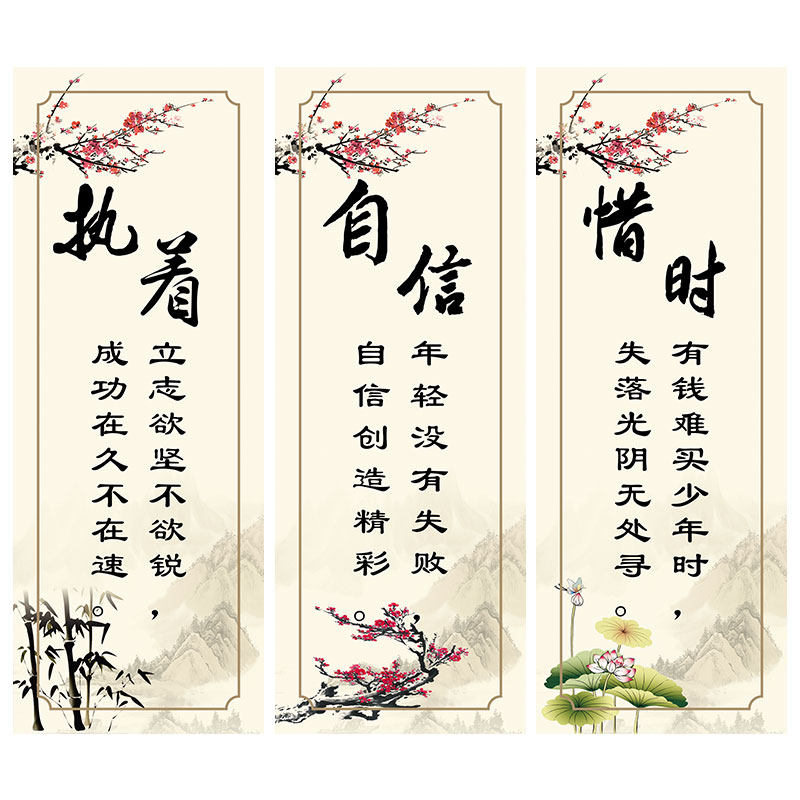 执着
立志欲坚不欲锐，
成功在久不在速。
自信
年轻没有失败，
自信创造精彩。
惜时
有钱难买少年时，
失落光阴无处寻。